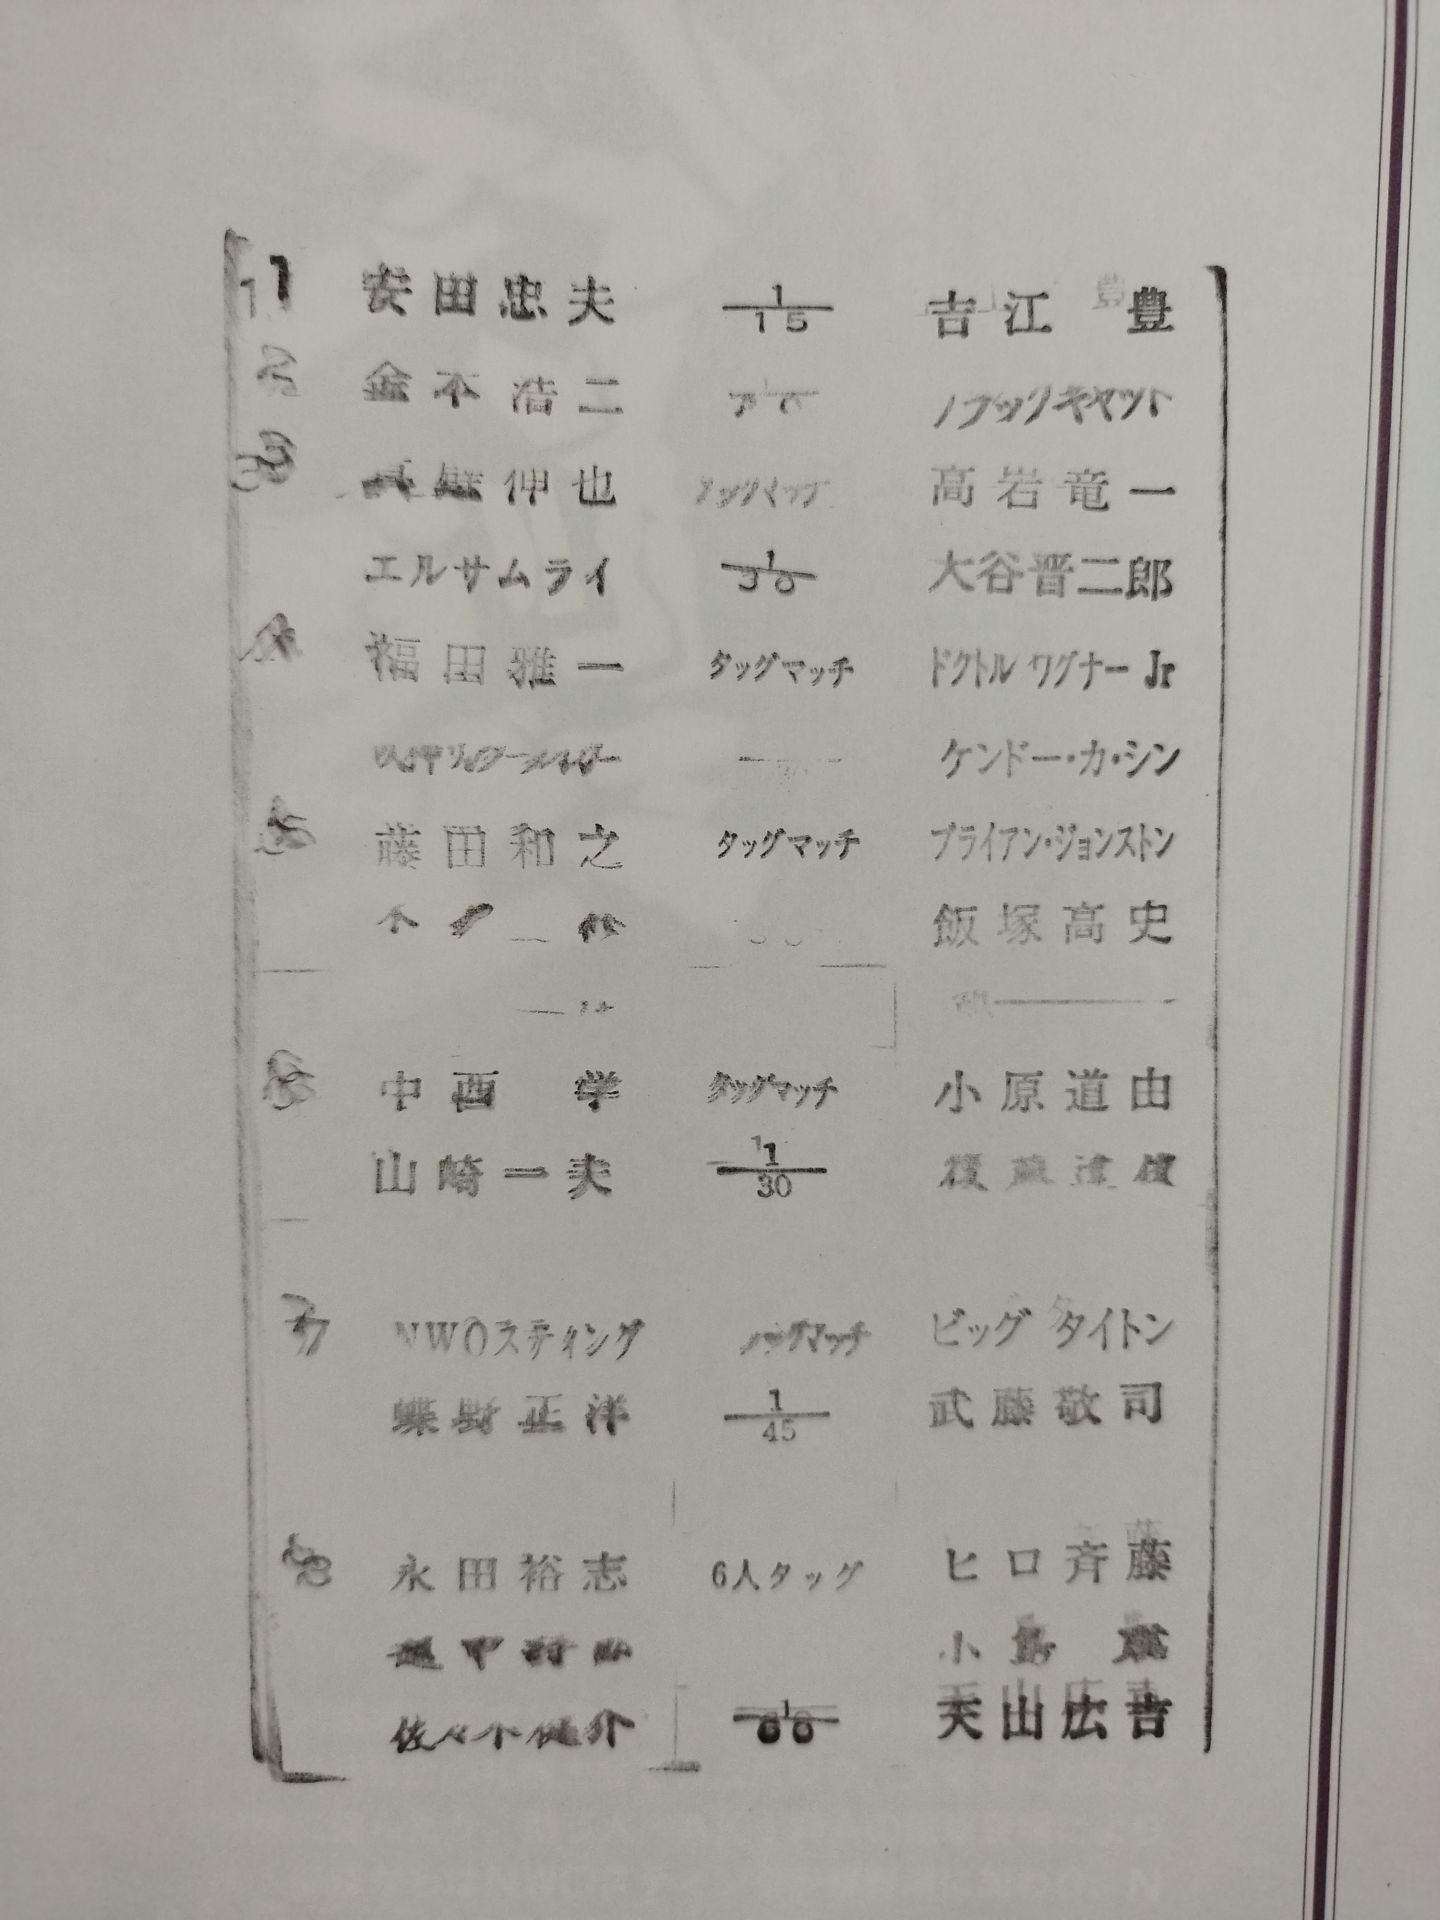 1 安田忠夫 1/15 吉江 豊
2 金本浩二 1/20 ブラックキャット
3 真壁伸也 タッグマッチ 高岩竜一
エルサムライ 1/30 大谷晋二郎
4 福田雅一 タッグマッチ ドクトル ワグナー Jr
ケンドー・カ・シン
5 藤田和之 タッグマッチ ブライアン・ジョンストン
飯塚高史
6 中西 学 タッグマッチ 小原道由
山崎一夫 1/30 後藤達俊
7 NWOスティング タッグマッチ ビッグ タイトン
蝶野正洋 1/45 武藤敬司
8 永田裕志 6人タッグ ヒロ斉藤
越中詩郎 小島 聡
佐々木健介 1/60 天山広吉